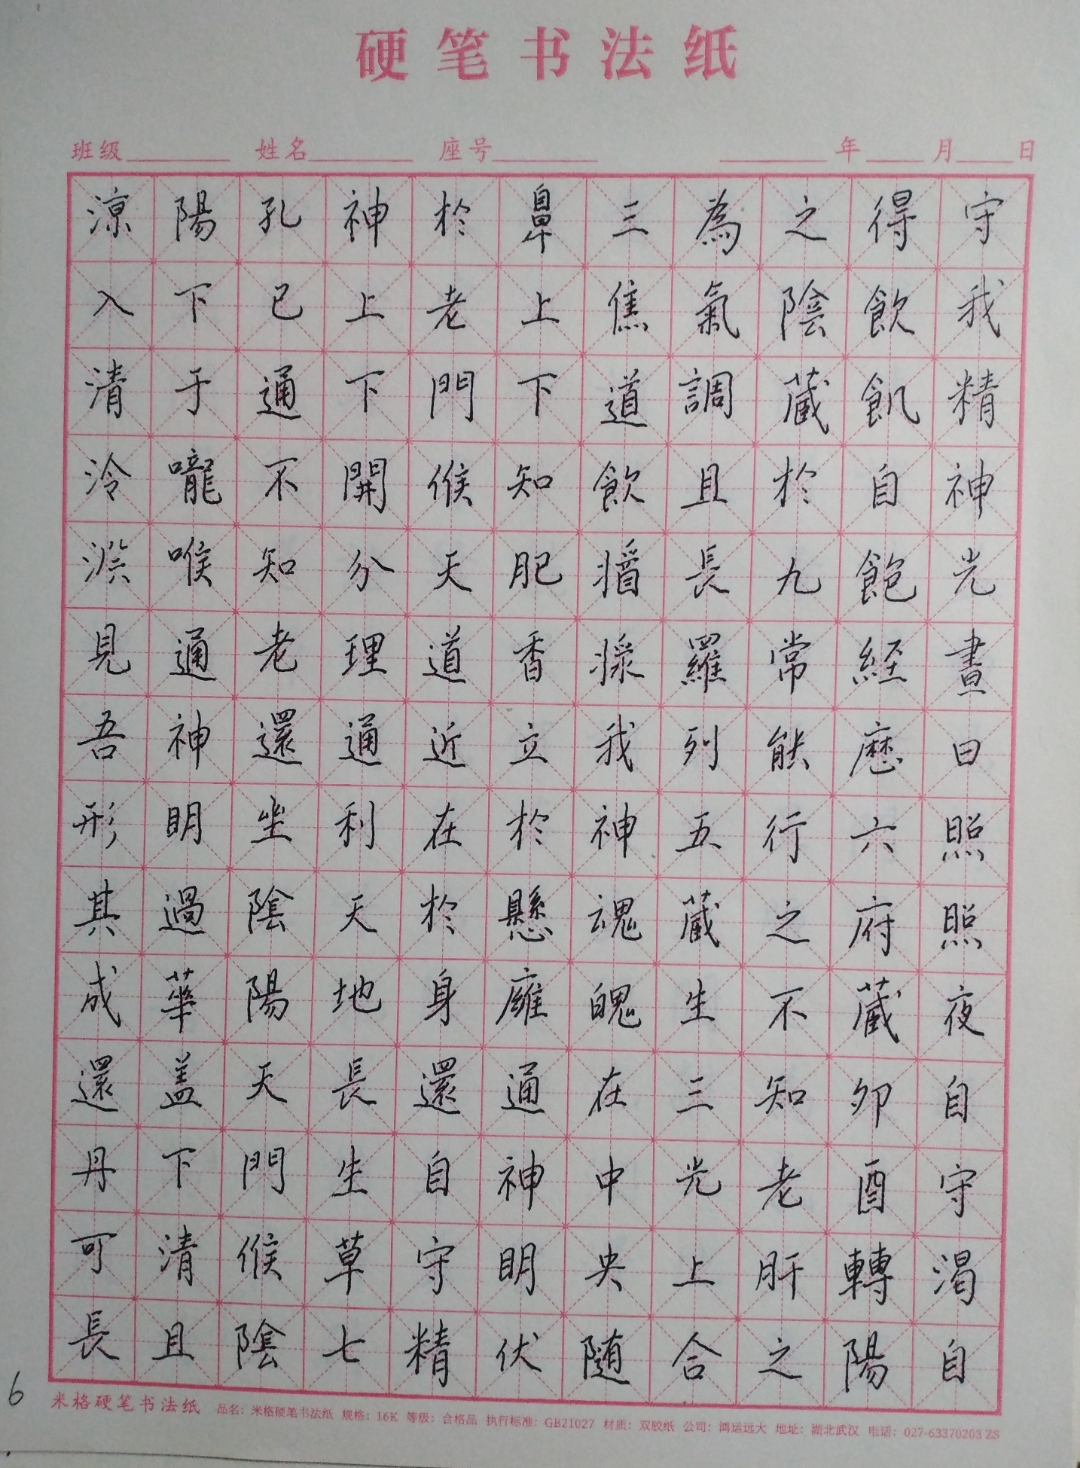 硬笔书法纸
班级 姓名 座号 年 月 日
守我精神光晝日照照夜自守渴自
得飲飢自飽經歷六府藏卯酉轉陽
之陰藏於九常能行之不知老肝之
為氣調且長羅列五藏生三光上合
三焦道飲醬漿我神魂魄在中央随
鼻上下知肥香立於懸廱通神明伏
於老門候天道近在於身還自守精
神上下開分理通利天地長生草七
孔已通不知老還坐陰陽天門候陰
陽下于嚨喉通神明過華盖下清且
涼入清泠淵見吾形其成還丹可長
6
米格硬笔书法纸 品名:米格硬笔书法纸 规格:16K 等级:合格品 执行标准:GB21027 材质:双胶纸 公司:鸿运远大 地址:湖北武汉 电话:027-63370203 ZS